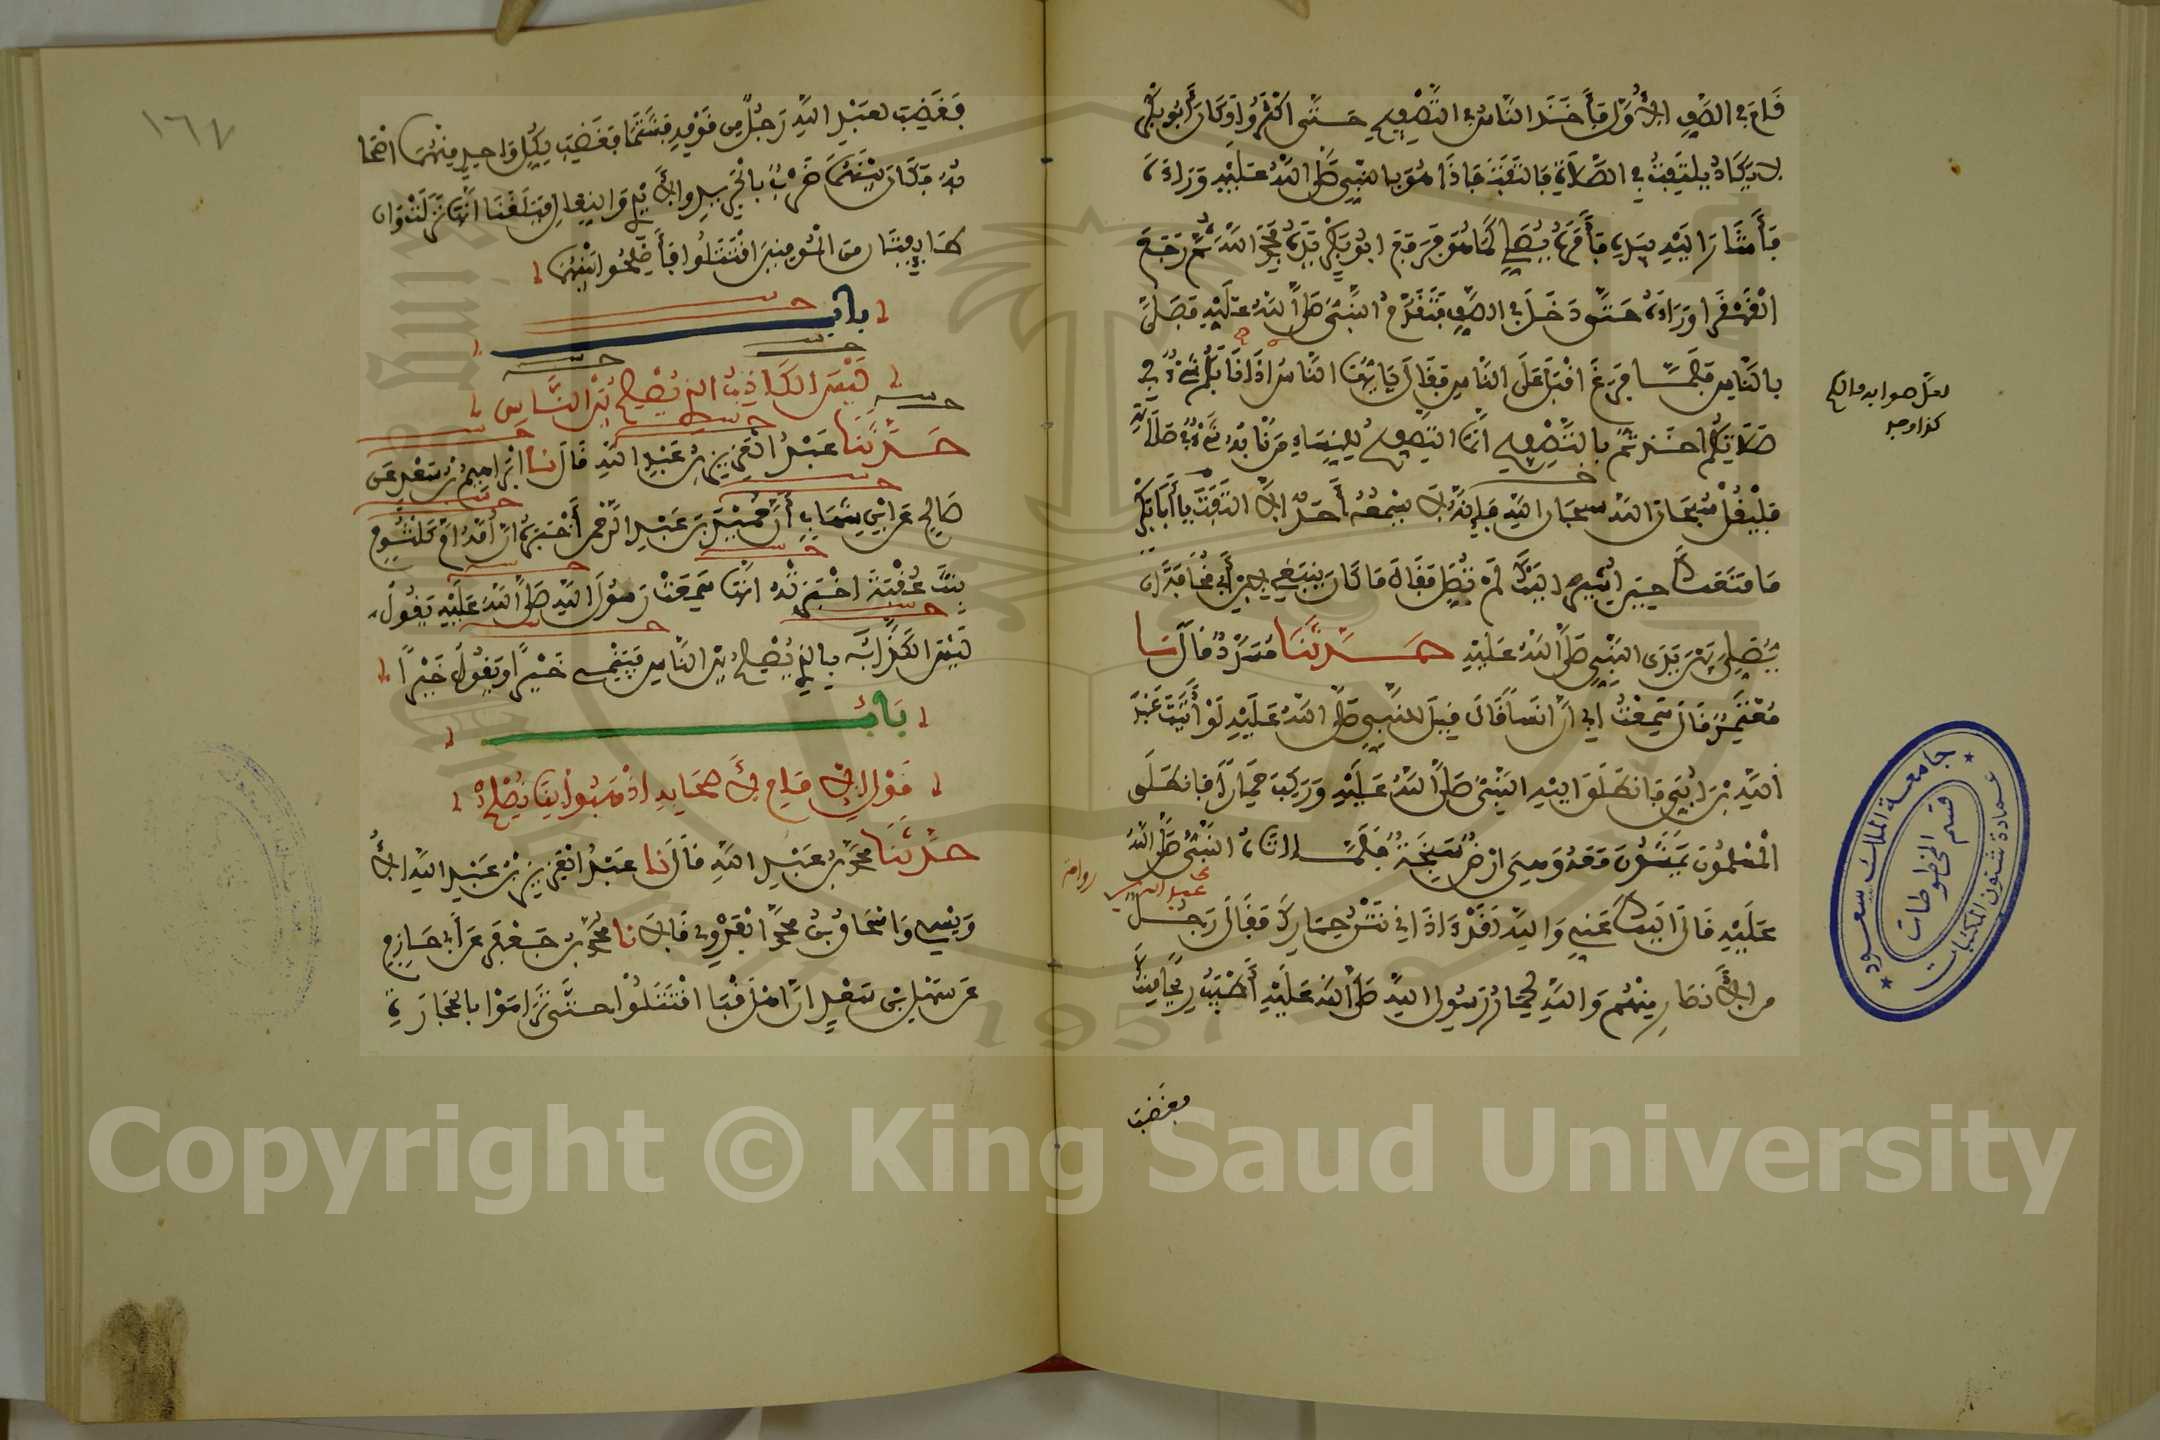 قام في الصف الأول فأخذ الناس في التصفيح حتى أكثروا وكان أبو بكر
لا يكاد يلتفت في الصلاة فالتفت فإذا هو بالنبي صلى الله عليه وراءه
فأشار إليه بيده فأمره يصلي كما هو فرفع أبو بكر يده فحمد الله ثم رجع
القهقرا وراءه حتى دخل في الصف فتقدم النبي صلى الله عليه فصلى
بالناس فلما فرغ أقبل على الناس فقال يا يها الناس إذا نابكم شيء في
صلاتكم أخذتم بالتصفيح إنما التصفيح للنساء من نابه شيء في صلاته
فليقل سبحان الله سبحان الله فإنه لا يسمعه أحد إلا التفت يا أبا بكر
ما منعك حين أشير إليك لم تصل فقال ما كان ينبغي لابن أبي قحافة أن
يصلي بين يدي النبي صلى الله عليه حدثنا مسدد قال نا
معتمر قال سمعت أبي أن أنسا قال قيل للنبي صلى الله عليه لو أتيت عبد
الله بن أبي فانطلق إليه النبي صلى الله عليه وركب حمارا فانطلق
المسلمون يمشون معه وهي أرض سبخة فلما أتاه النبي صلى الله
عليه قال إليك عني والله لقد آذاني نتن حمارك فقال رجل
من الأنصار منهم والله لحمار رسول الله صلى الله عليه أطيب ريحا منك
فغضب
جامعة الملك سعود
عمادة شئون المكتبات
قسم المخطوطات
١٦٧
فغضب لعبد الله رجل من قومه فشتما فغضب لكل واحد منهما أصحا
به فكان بينهما ضرب بالجريد والأيدي والنعال فبلغنا أنها نزلت وإن
طايفتان من المومنين اقتتلوا فأصلحوا بينهما
باب
ليس الكاذب الذي يصلح بين الناس
حدثنا عبد العزيز بن عبد الله قال نا إبراهيم بن سعد عن
صالح عن ابن شهاب أن حميد بن عبد الرحمن أخبره أن أمه أم كلثوم
بنت عقبة أخبرته أنها سمعت رسول الله صلى الله عليه يقول
ليس الكذاب بالذي يصلح بين الناس فينمي خيرا أو يقول خيرا
باب
قول الإمام لأصحابه اذهبوا بنا نصلح
حدثنا محمد بن عبد الله قال نا عبد العزيز بن عبد الله الأ
ويسي وإسحاق بن محمد الفروي قالا نا محمد بن جعفر عن أبي حازم
عن سهل بن سعد أن أهل قبا اقتتلوا حتى تراموا بالحجارة
Copyright © King Saud University
1957